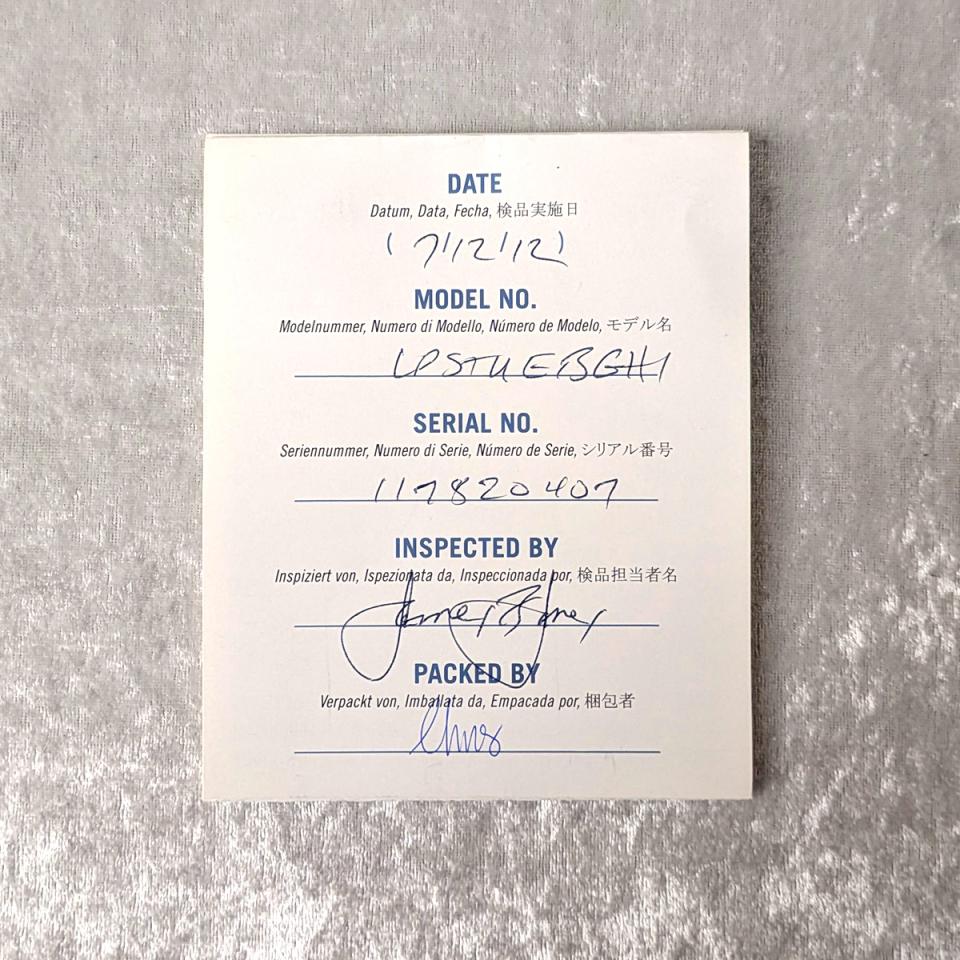 DATE
Datum, Data, Fecha, 検品実施日
(7/12/12)
MODEL NO.
Modelnummer, Numero di Modello, Número de Modelo, モデル名
LPSTUEBGH1
SERIAL NO.
Seriennummer, Numero di Serie, Número de Serie, シリアル番号
117820407
INSPECTED BY
Inspiziert von, Ispezionata da, Inspeccionada por, 検品担当者名
PACKED BY
Verpackt von, Imballata da, Empacada por, 梱包者
Chris